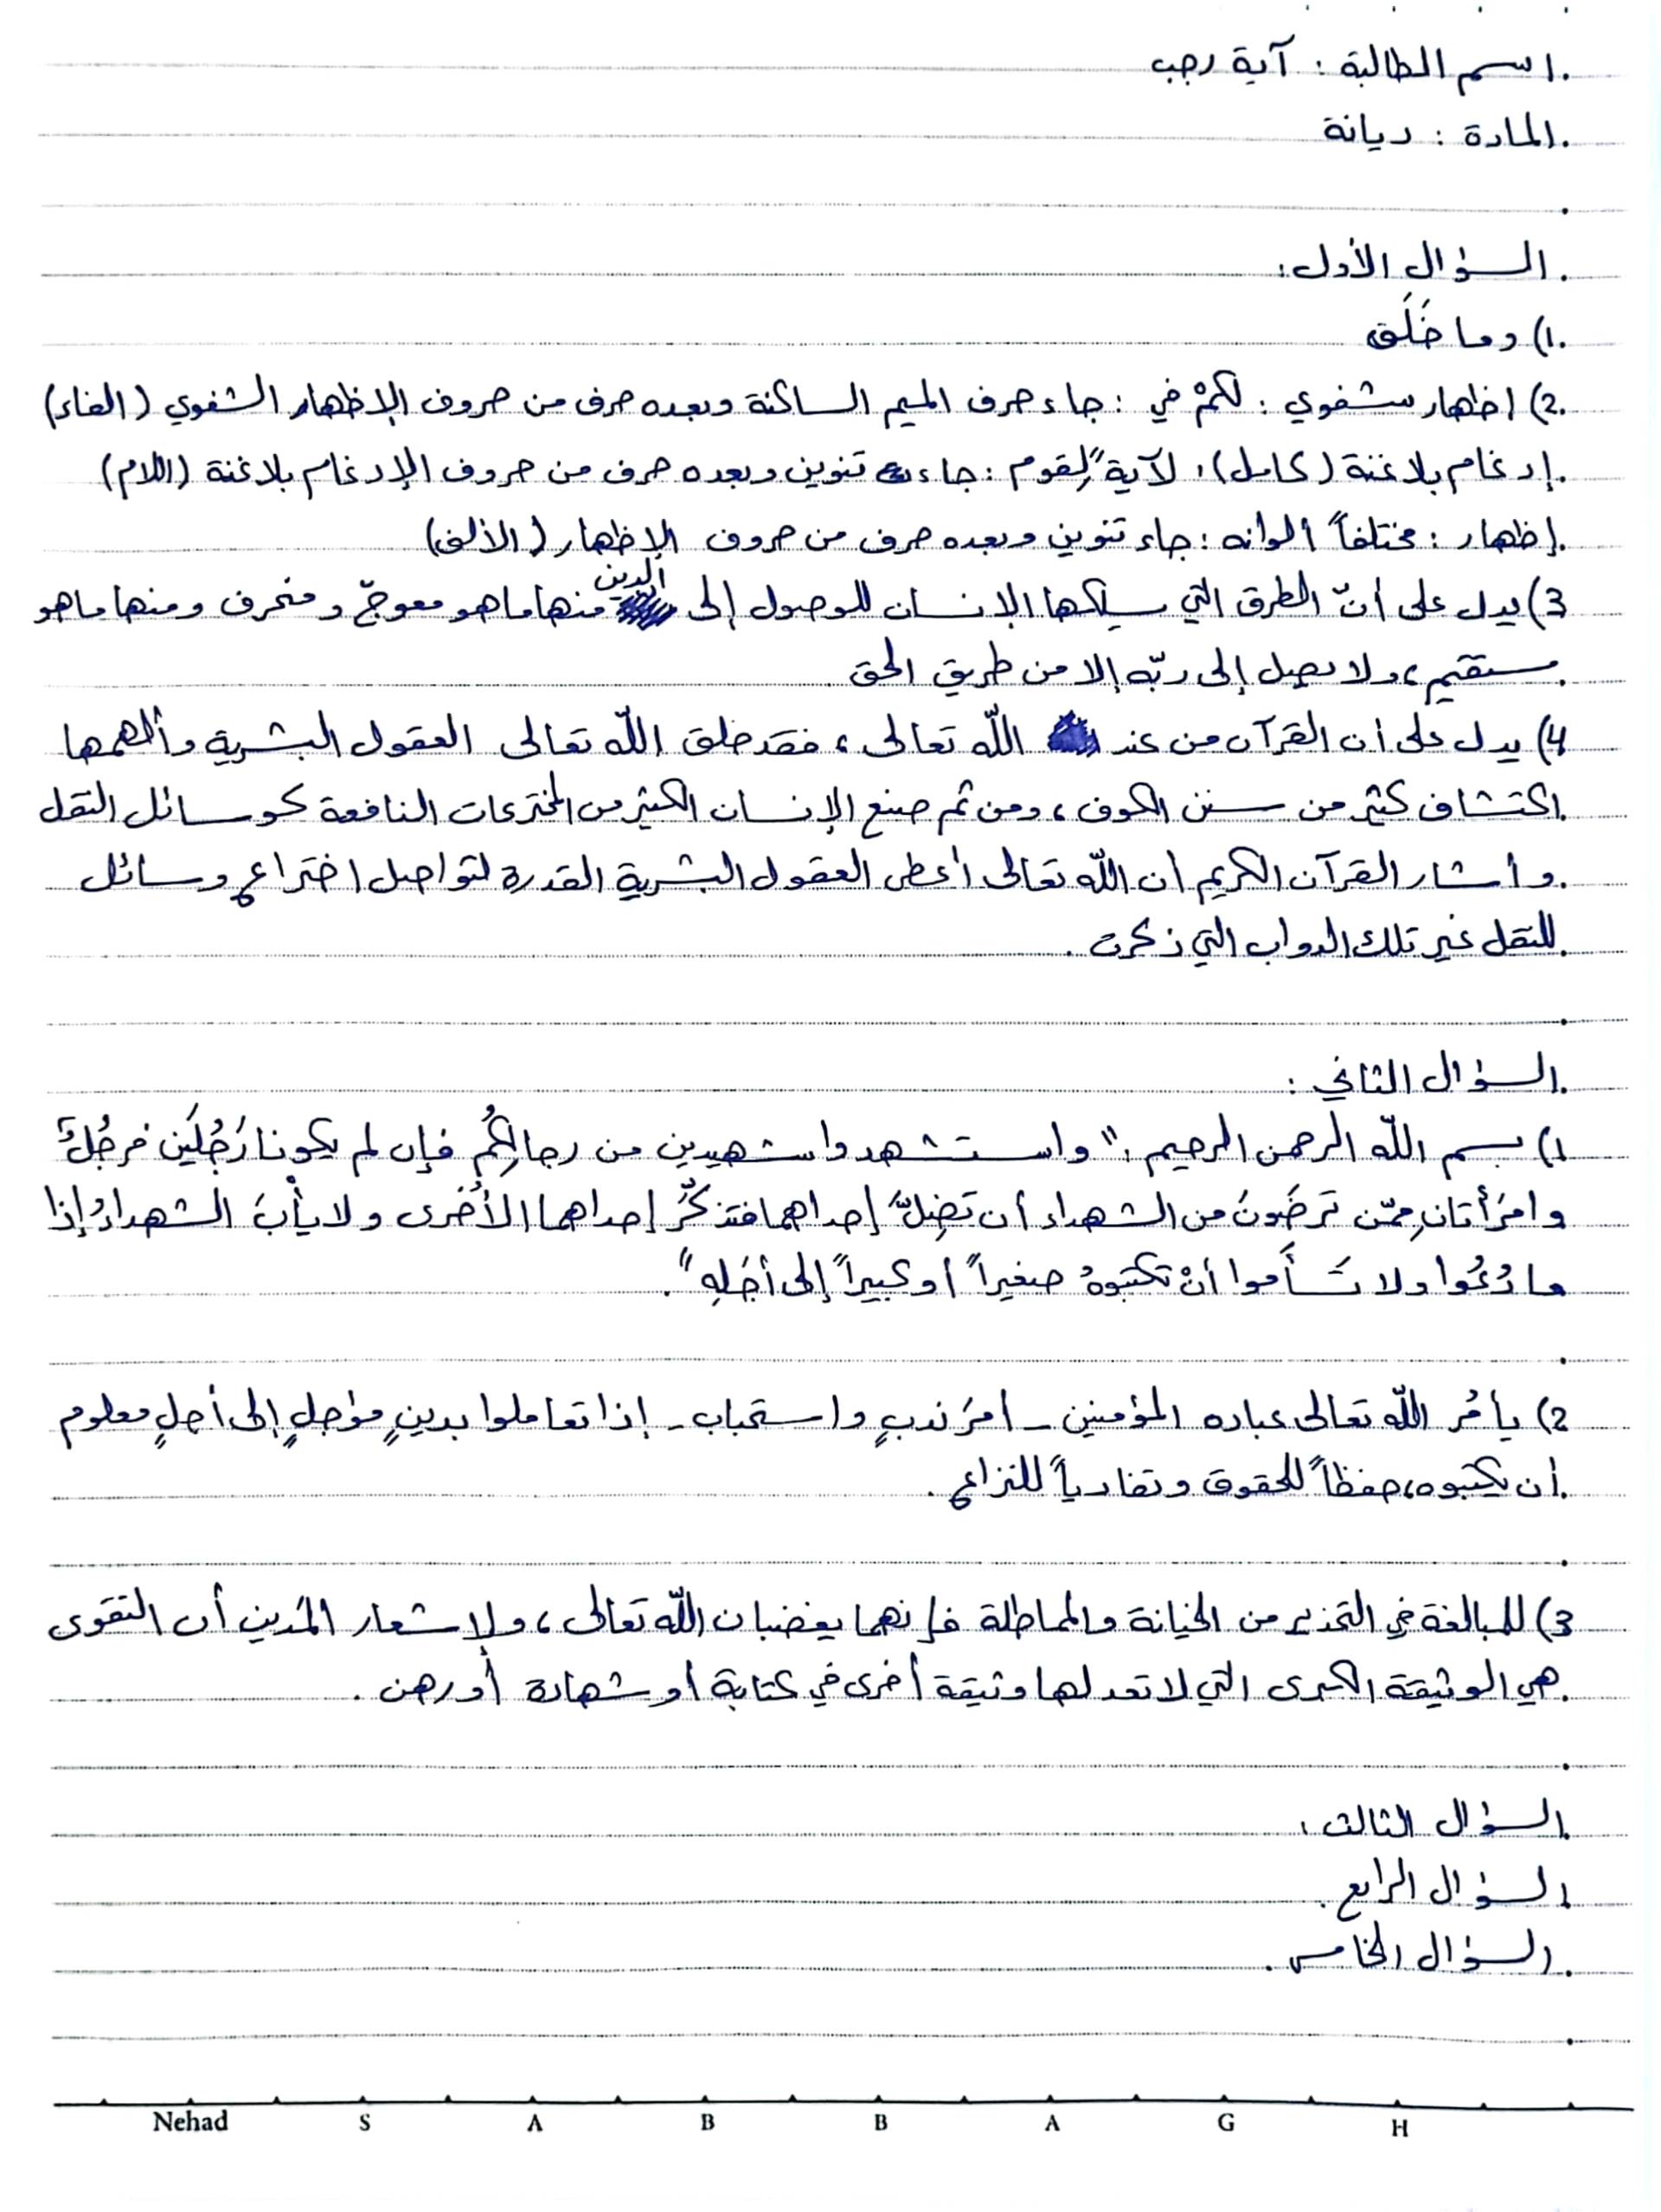 اسم الطالبة : آية رجب
المادة : ديانة
السؤال الأول :
1) وما خَلَق
2) إظهار شفوي : لكمْ في : جاء حرف الميم الساكنة وبعده حرف من حروف الإظهار الشفوي (الفاء)
إدغام بلا غنة (كامل) : لآيةً لِقوم : جاء تنوين وبعده حرف من حروف الإدغام بلا غنة (اللام)
إظهار : مختلفاً ألوانه : جاء تنوين وبعده حرف من حروف الإظهار (الألف)
3) يدل على أنّ الطرق التي يسلكها الإنسان للوصول إلى الدين منها ما هو معوجّ و منحرف ومنها ما هو
مستقيم ، ولا يصل إلى ربّه إلا من طريق الحق
4) يدل على أن القرآن من عند اللّه تعالى ، فقد خلق اللّه تعالى العقول البشرية وألهمها
اكتشاف كثير من سنن الكون ، ومن ثم صنع الإنسان الكثير من المخترعات النافعة كوسائل النقل
وأشار القرآن الكريم أن اللّه تعالى أعطى العقول البشرية القدرة لتواصل اختراع وسائل
للنقل غير تلك الدواب التي ذكرت .
السؤال الثاني :
1) بسم اللّه الرحمن الرحيم : " واستشهدوا شهيدين من رجالِكُم فإن لم يكونا رَجُلَين فرجُلٌ
وامرَأتان مِمّن تَرضَونَ من الشهداء أن تَضِلَّ إحداهما فتذكّرَ إحداهما الأُخرى ولا يأْبَ الشهداءُ إذا
ما دُعُوا ولا تَسأَموا أنْ تكتبوهُ صغيراً أو كبيراً إلى أجَلِهِ " .
2) يأمُر اللّه تعالى عباده المؤمنين - أمرَ ندبٍ واستحباب - إذا تعاملوا بدينٍ مؤجلٍ إلى أجلٍ معلوم
أن يكتبوه ، حفظاً للحقوق وتفادياً للنزاع .
3) للمبالغة في التحذير من الخيانة والمماطلة فإنهما يغضبان اللّه تعالى ، ولإشعار المَدين أن التقوى
هي الوثيقة الكبرى التي لا تعد لها وثيقة أخرى في كتابة أو شهادة أو رهن .
السؤال الثالث :
السؤال الرابع .
السؤال الخامس .
Nehad S A B B A G H